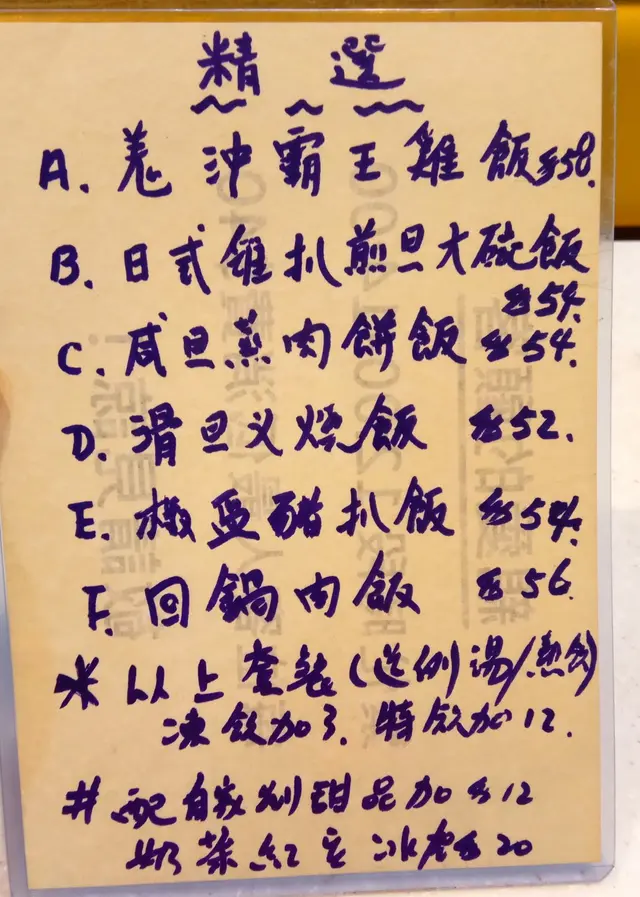 精選
A. 羗沖霸王雞飯 $58.
B. 日式雞扒煎旦大碗飯
$54.
C. 咸旦蒸肉餅飯 $54.
D. 滑旦义燒飯 $52.
E. 椒盐豬扒飯 $54.
F. 回鍋肉飯 $56.
* 以上套裝(送例湯/熱飲)
凍飲加3. 特飲加12.
# 配自家制甜品加$12
奶茶紅豆冰 $20